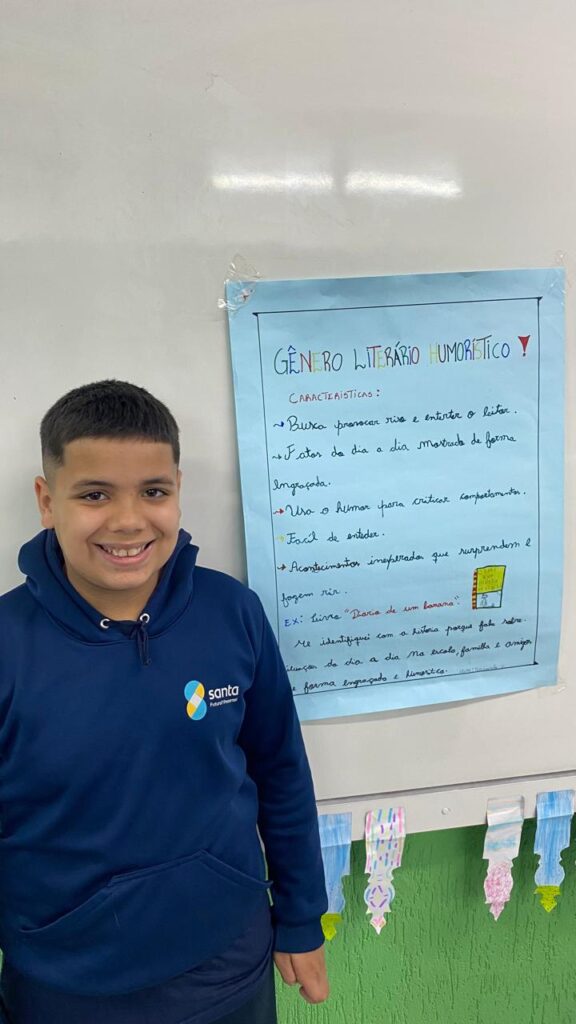 GÊNERO LITERÁRIO HUMORÍSTICO !
CARACTERISTICAS:
Busca provocar riso e enterter o leitor.
→ Fatos do dia a dia mostrado de forma
engraçada.
→ Usa o humor para criticar comportamentos.
→ Facil de enteder.
→ Acontecimentos inesperados que surprendem e
fazem rir.
EX: Livro "Diario de um banana".
Me identifiquei com a historia porque fala sobre
situações do dia a dia na escola, familha e amigos
de forma engraçado e humoritico.
santa